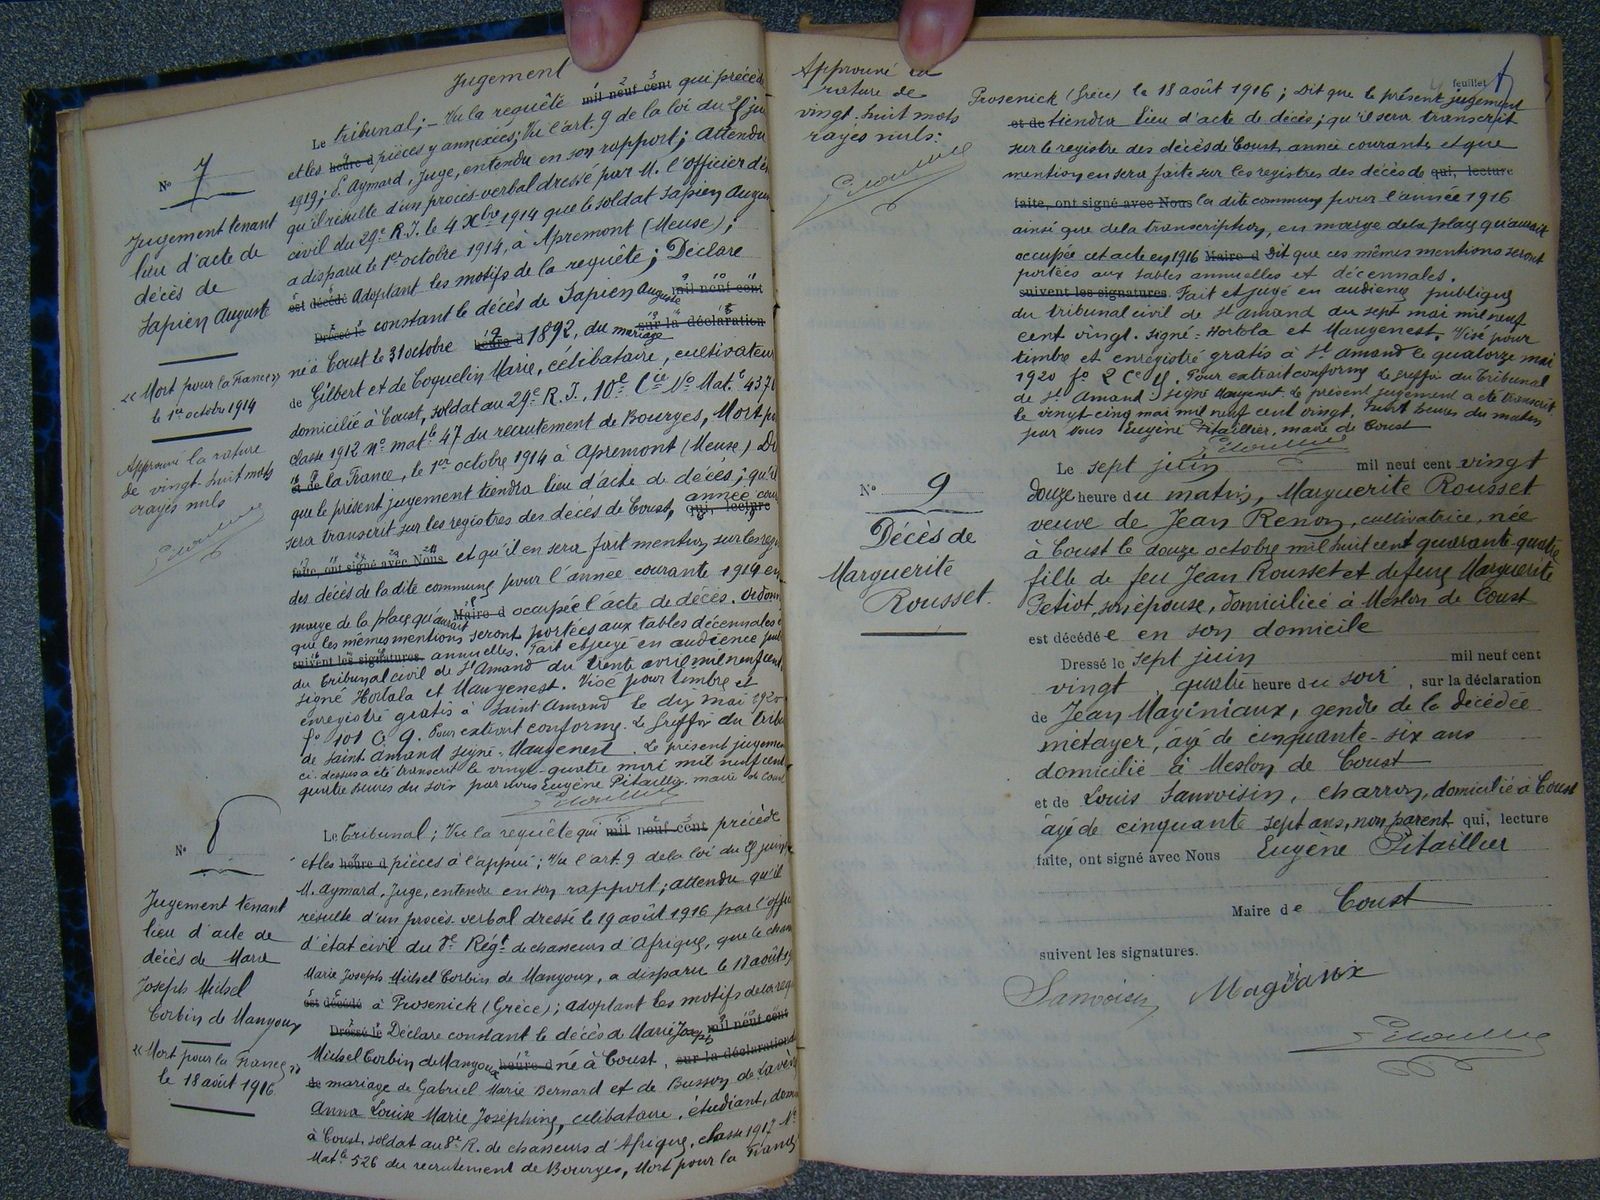 Jugement
N° 7
Jugement tenant
lieu d'acte de
décès de
Sapien Auguste
« Mort pour la France »
le 1er octobre 1914
Approuvé la rature
de vingt-huit mots
rayés nuls
Le tribunal; – Vu la requête mil neuf cent qui précède
et les heure d pièces y annexées; Vu l'art. 9 de la loi du
1919; Aymard, Juge, entendu en son rapport; attendu
qu'il résulte d'un procès-verbal dressé par M. l'officier d'é
civil du 29e R.I. le 4 Xbre 1914 que le soldat Sapien Augus
a disparu le 1er octobre 1914, à Apremont (Meuse);
est décédé Adoptant les motifs de la requête; Déclare
Dressé le constant le décès de Sapien Auguste mil neuf cent
né à Coust le 31 octobre heure d 1892, du mariage sur la déclaration
de Gilbert et de Coquelin Marie, célibataire, cultivateur
domicilié à Coust, soldat au 29e R.I., 10e Cie No Mat.le 437
classe 1912 No mat.le 47 du recrutement de Bourges, Mort p
et de la France, le 1er octobre 1914 à Apremont (Meuse) Di
que le présent jugement tiendra lieu d'acte de décès; qu'il
sera transcrit sur les registres des décès de Coust, année cour qui, lecture
faite, ont signé avec Nous et qu'il en sera fait mention sur les reg
des décès de la dite commune pour l'année courante 1914 en
marge de la place qu'aurait Maire d occupée l'acte de décès. Ordonn
que les mêmes mentions seront portées aux tables décennales
suivent les signatures. annuelles. Fait et jugé en audience pub
du tribunal civil de St Amand du trente avril mil neuf cent
signé Hortala et Maugenest. Visé pour timbre et
enregistré gratis à Saint Amand le dix mai 1920
fo 101 C 9. Pour extrait conforme. Le Greffier du tribu
de Saint Amand signé - Maugenest. Le présent jugeme
ci-dessus a été transcrit le vingt-quatre mai mil neuf cent
quatre heures du soir par nous Eugène Pitaillier maire de Coust
N° 8
Jugement tenant
lieu d'acte de
décès de Marie
Joseph Michel
Corbin de Mangoux
« Mort pour la France »
le 18 août 1916
Le Tribunal; Vu la requête qui mil neuf cent précède
et les heure d pièces à l'appui; Vu l'art. 9 de la loi du juin
M. Aymard, Juge, entendu en son rapport; attendu qu'il
résulte d'un procès-verbal dressé le 19 août 1916 par l'offi
d'état civil du 8e Régt de chasseurs d'Afrique, que le chas
Marie Joseph Michel Corbin de Mangoux, a disparu le 18 août 19
est décédé à Prosenick (Grèce); adoptant les motifs de la req
Dressé le Déclare constant le décès de Marie Joseph mil neuf cent
Michel Corbin de Mangoux heure d né à Coust, sur la déclaration
de mariage de Gabriel Marie Bernard et de Busson de Lavè
Anna Louise Marie Joséphine, célibataire, étudiant, dom
à Coust, soldat au 8e R. de chasseurs d'Afrique, classe 1917 N°
Mat.le 526 du recrutement de Bourges, Mort pour la France
Approuvé la
rature de
vingt-huit mots
rayés nuls:
feuillet
Prosenick (Grèce) le 18 août 1916; Dit que le présent jugement
et de tiendra lieu d'acte de décès; qu'il sera transcrit
sur le registre des décès de Coust, année courante et que
mention en sera faite sur les registres des décès de qui, lecture
faite, ont signé avec Nous la dite commune pour l'année 1916
ainsi que de la transcription, en marge de la place qu'aurait
occupée cet acte en 1916 Maire d Dit que ces mêmes mentions seront
portées aux tables annuelles et décennales.
suivent les signatures. Fait et jugé en audience publique
du tribunal civil de St Amand du sept mai mil neuf
cent vingt. Signé - Hortala et Maugenest. Visé pour
timbre et enregistré gratis à St Amand le quatorze mai
1920 fo 2 Ce 4. Pour extrait conforme Le Greffier du Tribunal
de St Amand signé Maugenest. Le présent jugement a été transcrit
le vingt-cinq mai mil neuf cent vingt, huit heures du matin
par nous Eugène Pitaillier, maire de Coust
N° 9
Décès de
Marguerite
Rousset.
Le sept juin mil neuf cent vingt
douze heure du matin, Marguerite Rousset
veuve de Jean Renon, cultivatrice, née
à Coust le douze octobre mil huit cent quarante-quatre
fille de feu Jean Rousset et de feue Marguerite
Petiot, son épouse, domiciliée à Meslon de Coust
est décédée en son domicile
Dressé le sept juin mil neuf cent
vingt quatre heure du soir, sur la déclaration
de Jean Maginiaux, gendre de la décédée
métayer, âgé de cinquante-six ans
domicilié à Meslon de Coust
et de Louis Sanvoisin, charron, domicilié à Coust
âgé de cinquante sept ans, non parent qui, lecture
faite, ont signé avec Nous Eugène Pitaillier
Maire de Coust
suivent les signatures.
Sanvoisin Maginiaux